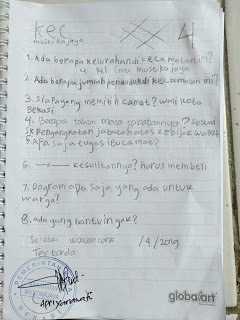 kec
mustikajaya
4
1. Ada berapa kelurahan di kecamatan ini?
4 kel mustikajaya
2. Ada berapa jumlah penduduk di kecamatan ini?
3. Siapa yang memilih camat? wali kota
Bekasi
4. Berapa tahun masa jabatannya? sesuai
SK pengangkatan jabatan
5. Apa saja tugas ibu camat?
6. kesulitannya? harus memberi
7. Program apa saja yang ada untuk
warga?
8. ada yang bantuin gak?
Selesai wawancara /4/2019
Tertanda
PEMERINTAH
apriyanawati
globalart